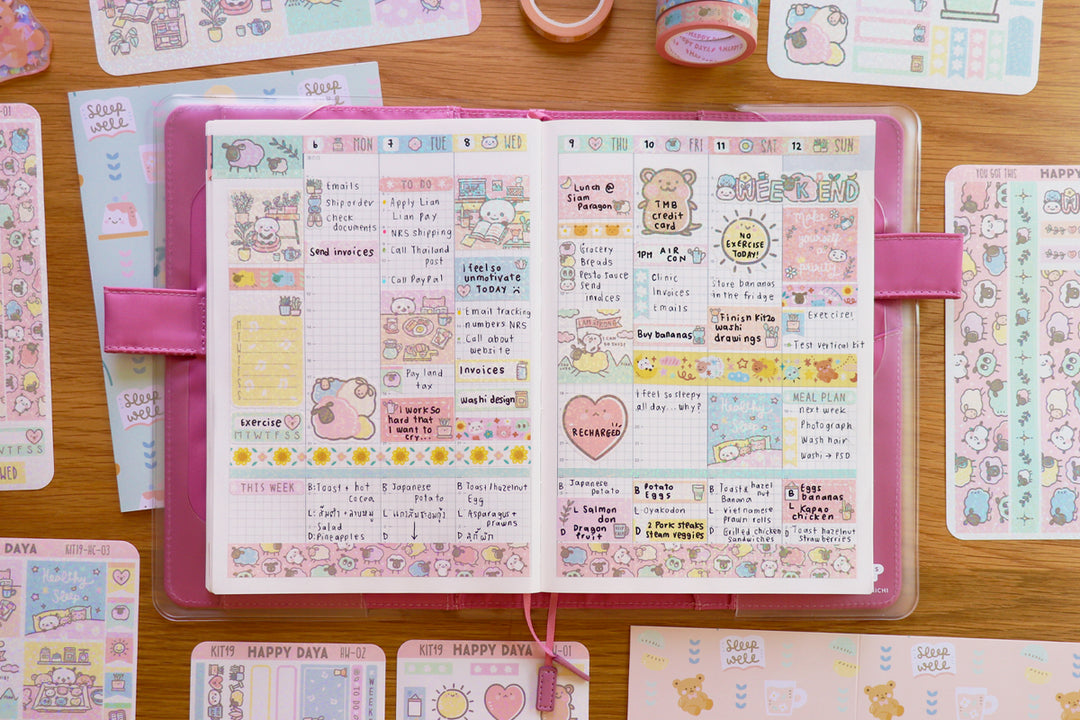 sleep
well
sleep
HAPPY DAYA
6 MON
Emails
Ship order
check
documents
Send invoices
7 TUE
TO DO
Apply Lian
Lian Pay
NRS shipping
Call Thailand
post
Call PayPal
Pay land
tax
I work so
hard that
I want to
cry...
8 WED
i feel so
unmotivate
TODAY
Email tracking
numbers NRS
Call about
website
Invoices
washi design
Exercise
M T W T F S S
9 THU
Lunch @
Siam
Paragon
Grocery
Breads
Pesto sauce
Send
invoices
RECHARGED
10 FRI
TMB
credit
card
1PM AIR
CON
Clinic
Invoices
Emails
Buy bananas
i feel so sleepy
all day... why?
11 SAT
WEEKEND
NO
EXERCISE
TODAY!
Store bananas
in the fridge
Finish Kit20
washi
drawings
Healthy
Sleep
12 SUN
Make
yourself
a
priority
Exercise!
Test vertical kit
MEAL PLAN
next week
Photograph
Wash hair
Washi → PSD
THIS WEEK
B: Toast + hot
cocoa
Salad
D: Pineapples
B Japanese
potato
L
D
B Toast hazelnut
Egg
L Asparagus +
prawns
D
B Japanese
potato
L Salmon
don
D Dragon
fruit
B Potato
Eggs
L Oyakodon
D 2 Pork steaks
steam veggies
B Toast & hazel
nut
Banana
L Vietnamese
prawn rolls
D Grilled chicken
sandwiches
B Eggs
bananas
L Kapao
chicken
D Toast hazelnut
Strawberries
sleep
well
-01
WED
YOU GOT THIS
HAPPY
DAYA KIT19-HC-03
Healthy
Sleep
KIT19 HAPPY DAYA HW-02
WEEK
KIT19 HAPPY DAYA -01
sleep
well
sleep
well